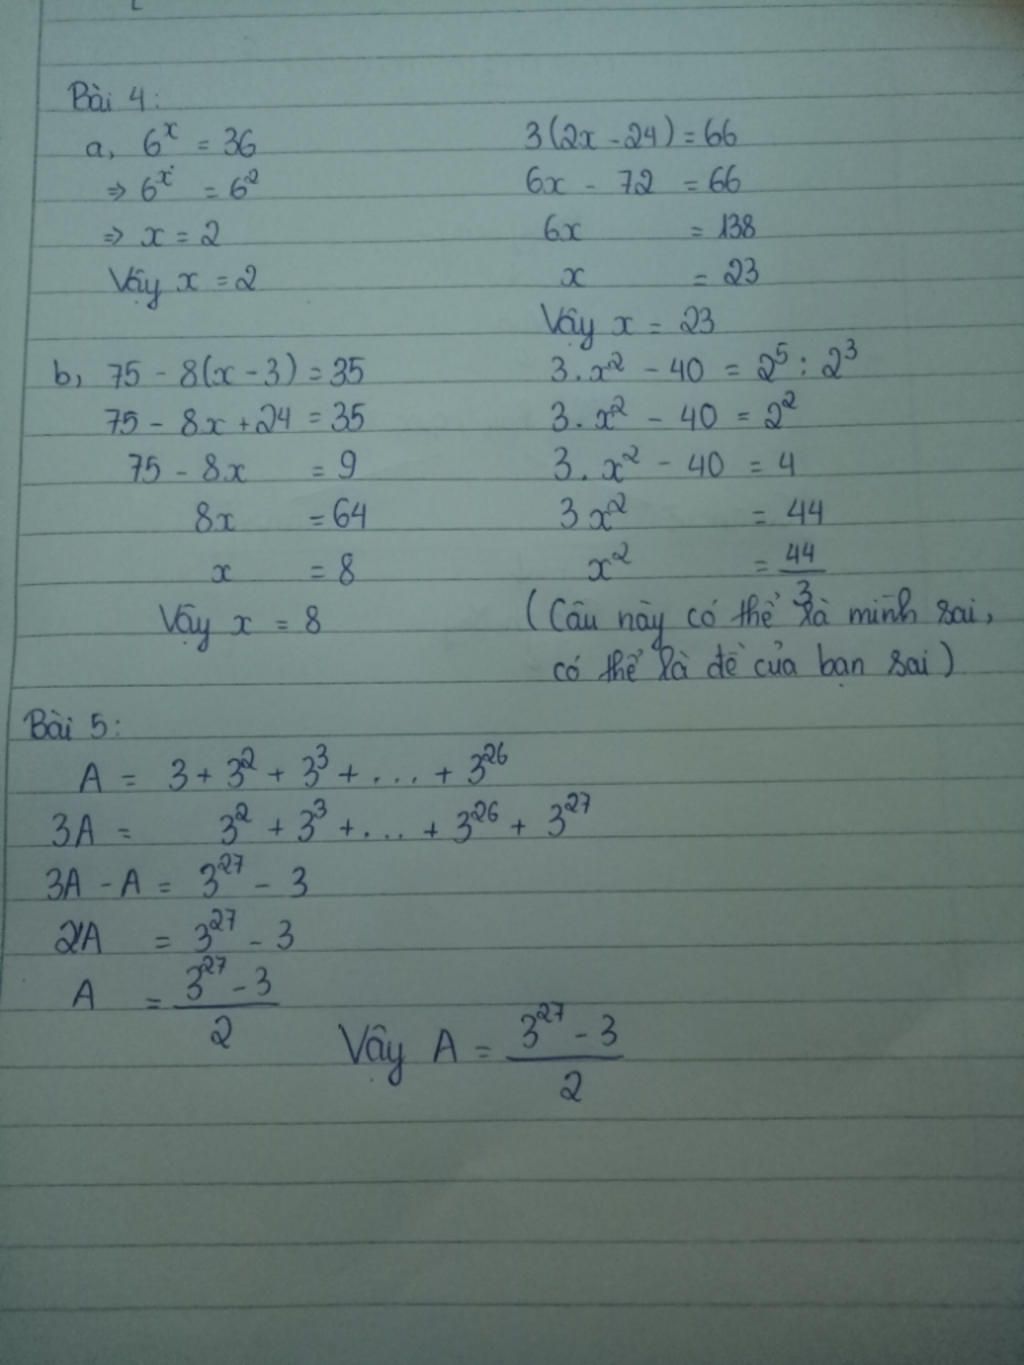 Bài 4:
a, 6^x = 36
⇒ 6^x = 6^2
⇒ x = 2
Vậy x = 2
3(2x - 24) = 66
6x - 72 = 66
6x = 138
x = 23
Vậy x = 23
b, 75 - 8(x - 3) = 35
75 - 8x + 24 = 35
75 - 8x = 9
8x = 64
x = 8
Vậy x = 8
3.x^2 - 40 = 2^5 : 2^3
3.x^2 - 40 = 2^2
3.x^2 - 40 = 4
3x^2 = 44
x^2 = 44/3
(Câu này có thể là mình sai,
có thể là đề của bạn sai)
Bài 5:
A = 3 + 3^2 + 3^3 + ... + 3^26
3A = 3^2 + 3^3 + ... + 3^26 + 3^27
3A - A = 3^27 - 3
2A = 3^27 - 3
A = (3^27 - 3)/2
Vậy A = (3^27 - 3)/2